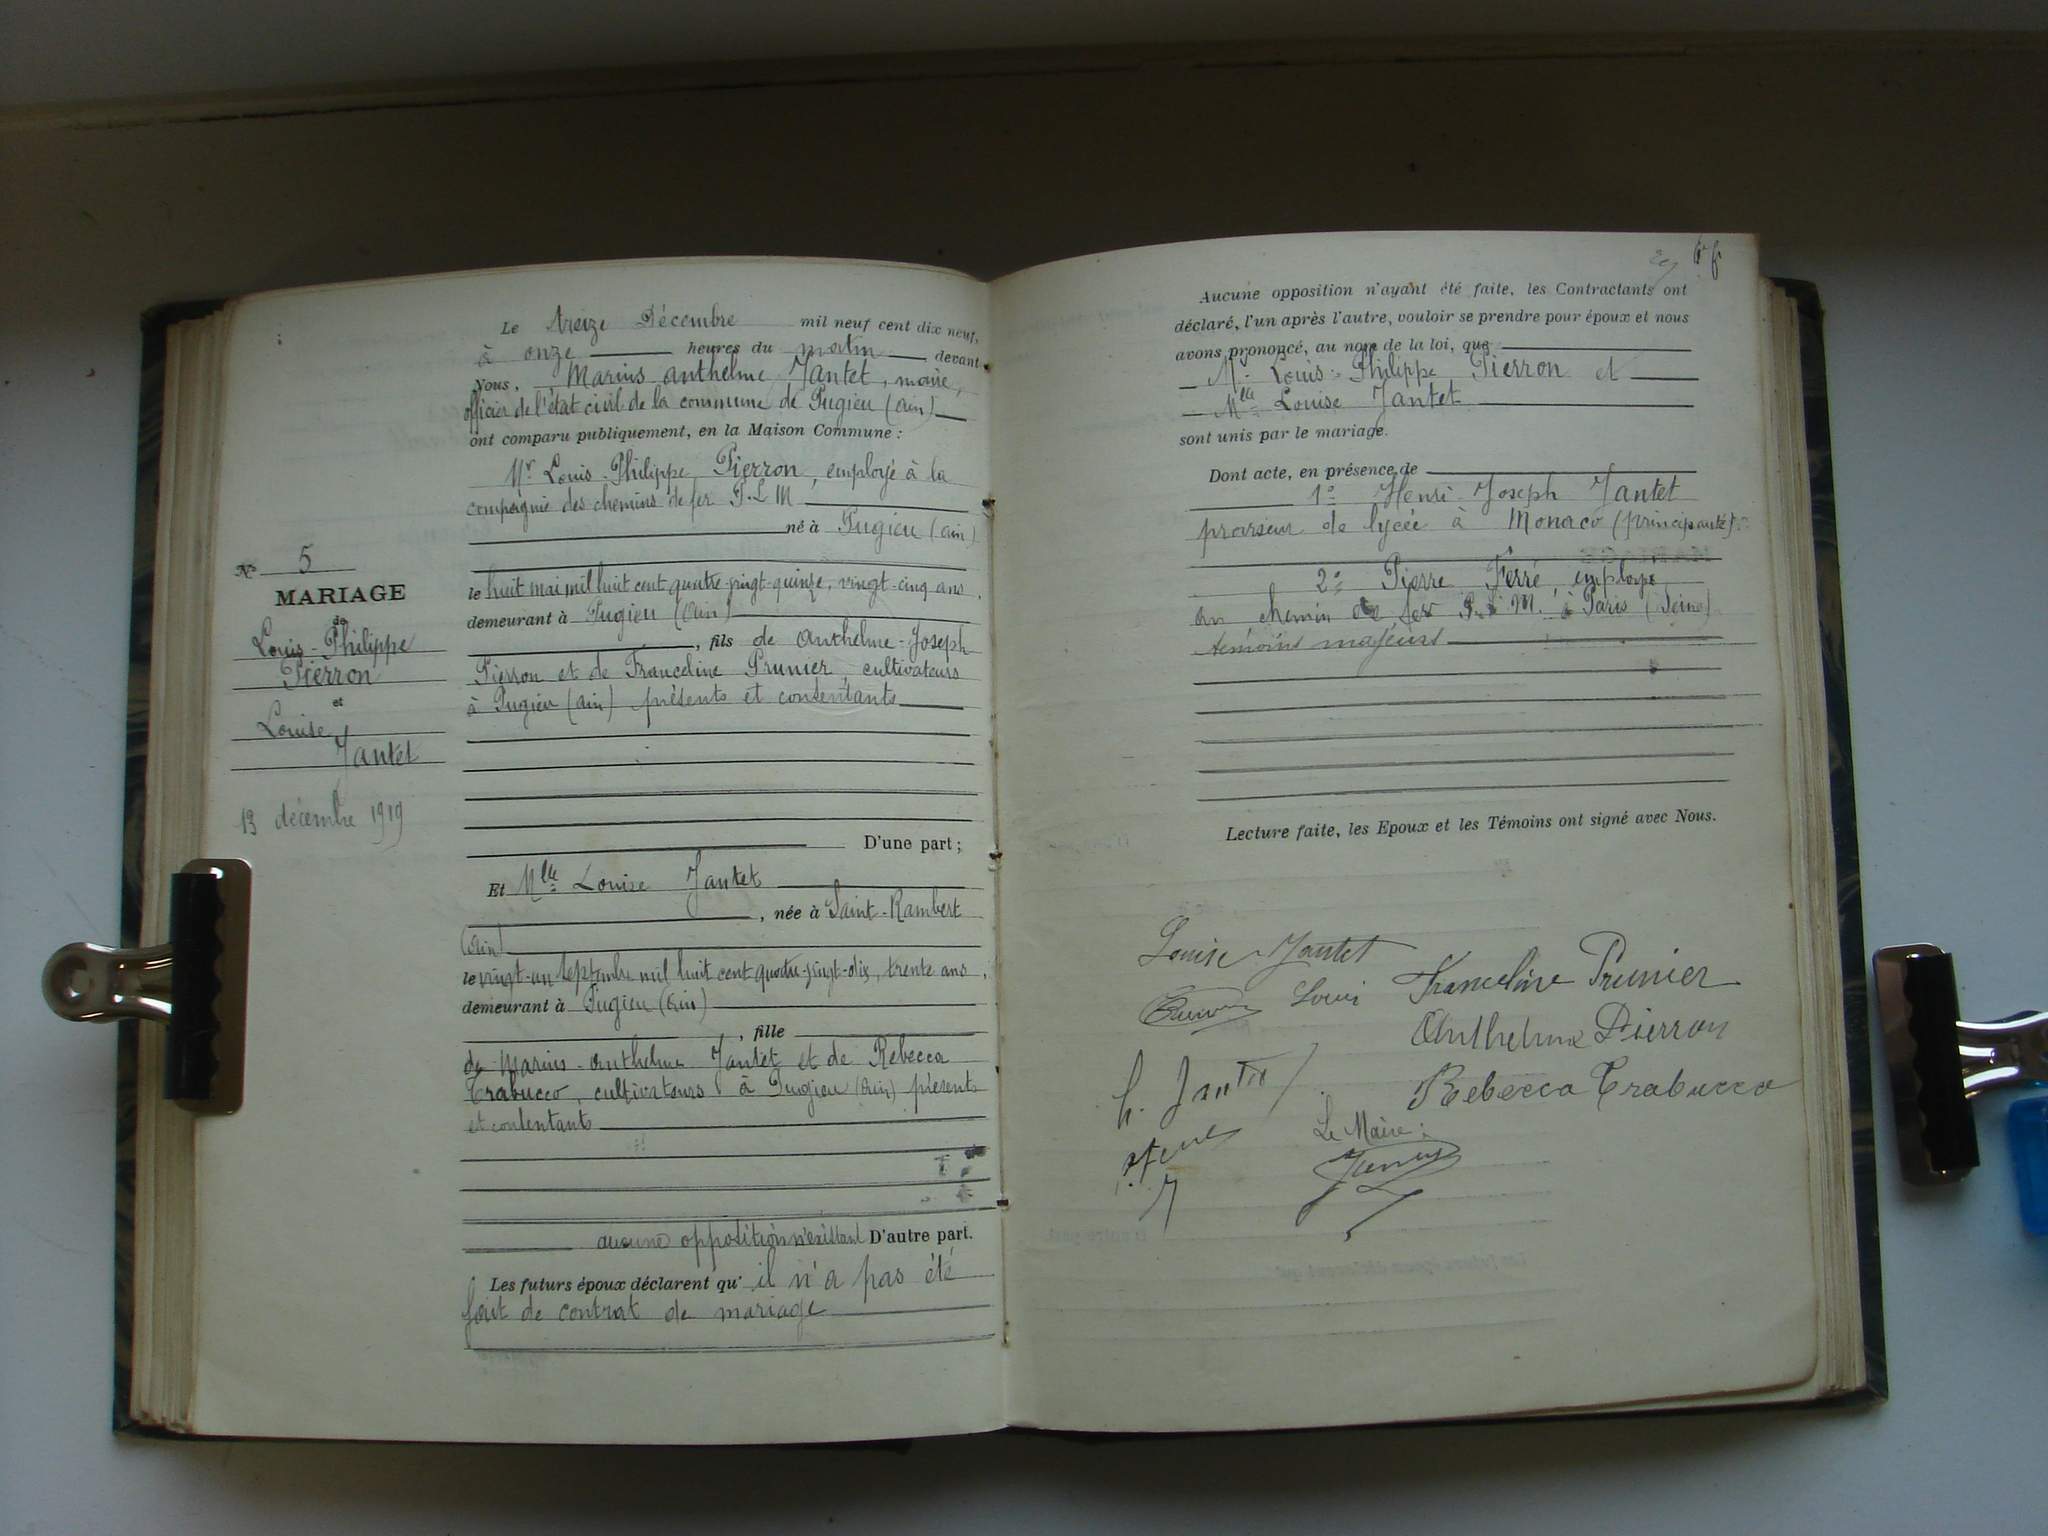 Le treize Décembre mil neuf cent dix neuf,
à onze heures du matin devant
Nous, Marius Anthelme Jantet, maire,
officier de l'état civil de la commune de Pugieu (Ain)
ont comparu publiquement, en la Maison Commune :
Mr Louis-Philippe Pierron, employé à la
compagnie des chemins de fer P.L.M
né à Pugieu (Ain)
le huit mai mil huit cent quatre-vingt-quinze, vingt-cinq ans,
demeurant à Pugieu (Ain)
, fils de Anthelme-Joseph
Pierron et de Franceline Prunier, cultivateurs
à Pugieu (Ain) présents et consentants
D'une part ;
Et Mlle Louise Jantet
, née à Saint-Rambert
(Ain)
le vingt-un septembre mil huit cent quatre-vingt-dix, trente ans,
demeurant à Pugieu (Ain)
, fille
de Marius-Anthelme Jantet et de Rebecca
Trabucco, cultivateurs à Pugieu (Ain) présents
et contentants
aucune opposition n'existant D'autre part.
Les futurs époux déclarent qu'il n'a pas été
fait de contrat de mariage
No 5
MARIAGE
de
Louis-Philippe
Pierron
et
Louise
Jantet
13 décembre 1919
Aucune opposition n'ayant été faite, les Contractants ont
déclaré, l'un après l'autre, vouloir se prendre pour époux et nous
avons prononcé, au nom de la loi, que
Mr Louis-Philippe Pierron et
Mlle Louise Jantet
sont unis par le mariage.
Dont acte, en présence de
1° Henri-Joseph Jantet
proviseur de lycée à Monaco (principauté).
2° Pierre Ferré employé
au chemin de fer P.L.M. à Paris (Seine)
témoins majeurs
Lecture faite, les Epoux et les Témoins ont signé avec Nous.
Louise Jantet
Louis
Franceline Prunier
Anthelme Pierron
h. Jantet
Rebecca Trabucco
Le Maire :